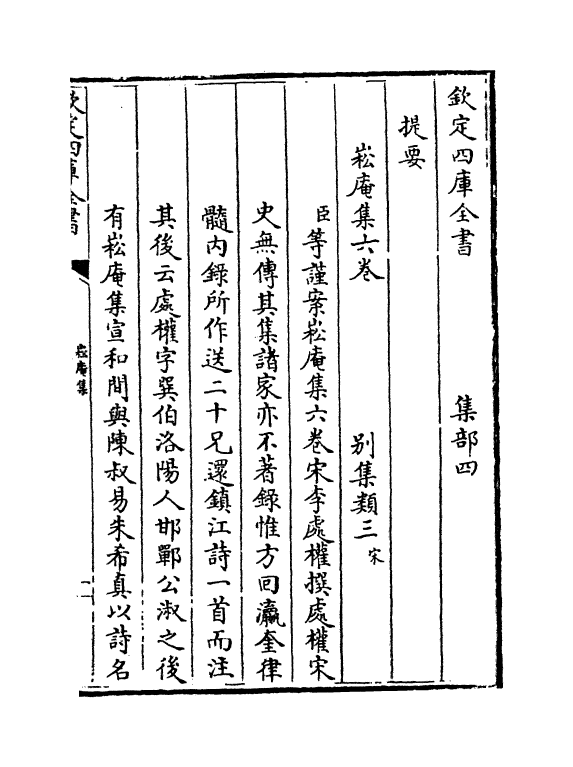 欽定四庫全書　集部四
提要
崧庵集六巻　别集類三宋
臣等謹案崧庵集六巻宋李處權撰處權宋
史無傳其集諸家亦不著錄惟方回瀛奎律
髓内錄所作送二十兄還鎮江詩一首而注
其後云處權字巽伯洛陽人邯鄲公淑之後
有崧庵集宣和間與陳叔易朱希真以詩名
欽定四庫全書
崧庵集
一